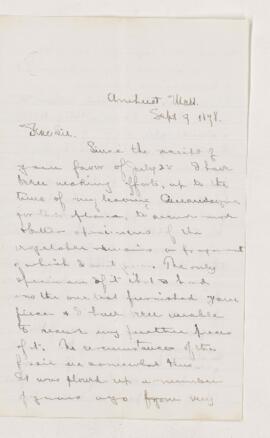 Amherst, Mass.
Sept 9 1878.
Dear sir.
Since the receipt of
your favor of July 22 I have
been making efforts, up to the
time of my leaving
for this place, to secure more
& better specimens of the
vegetable remains a fragment
of which I sent you. The only
specimen of it that I had
was the one that furnished your
piece & I have been unable
to secure any further pieces
of it. The circumstances of the
find are somewhat thus.
It was plowed up a number
of years ago from very